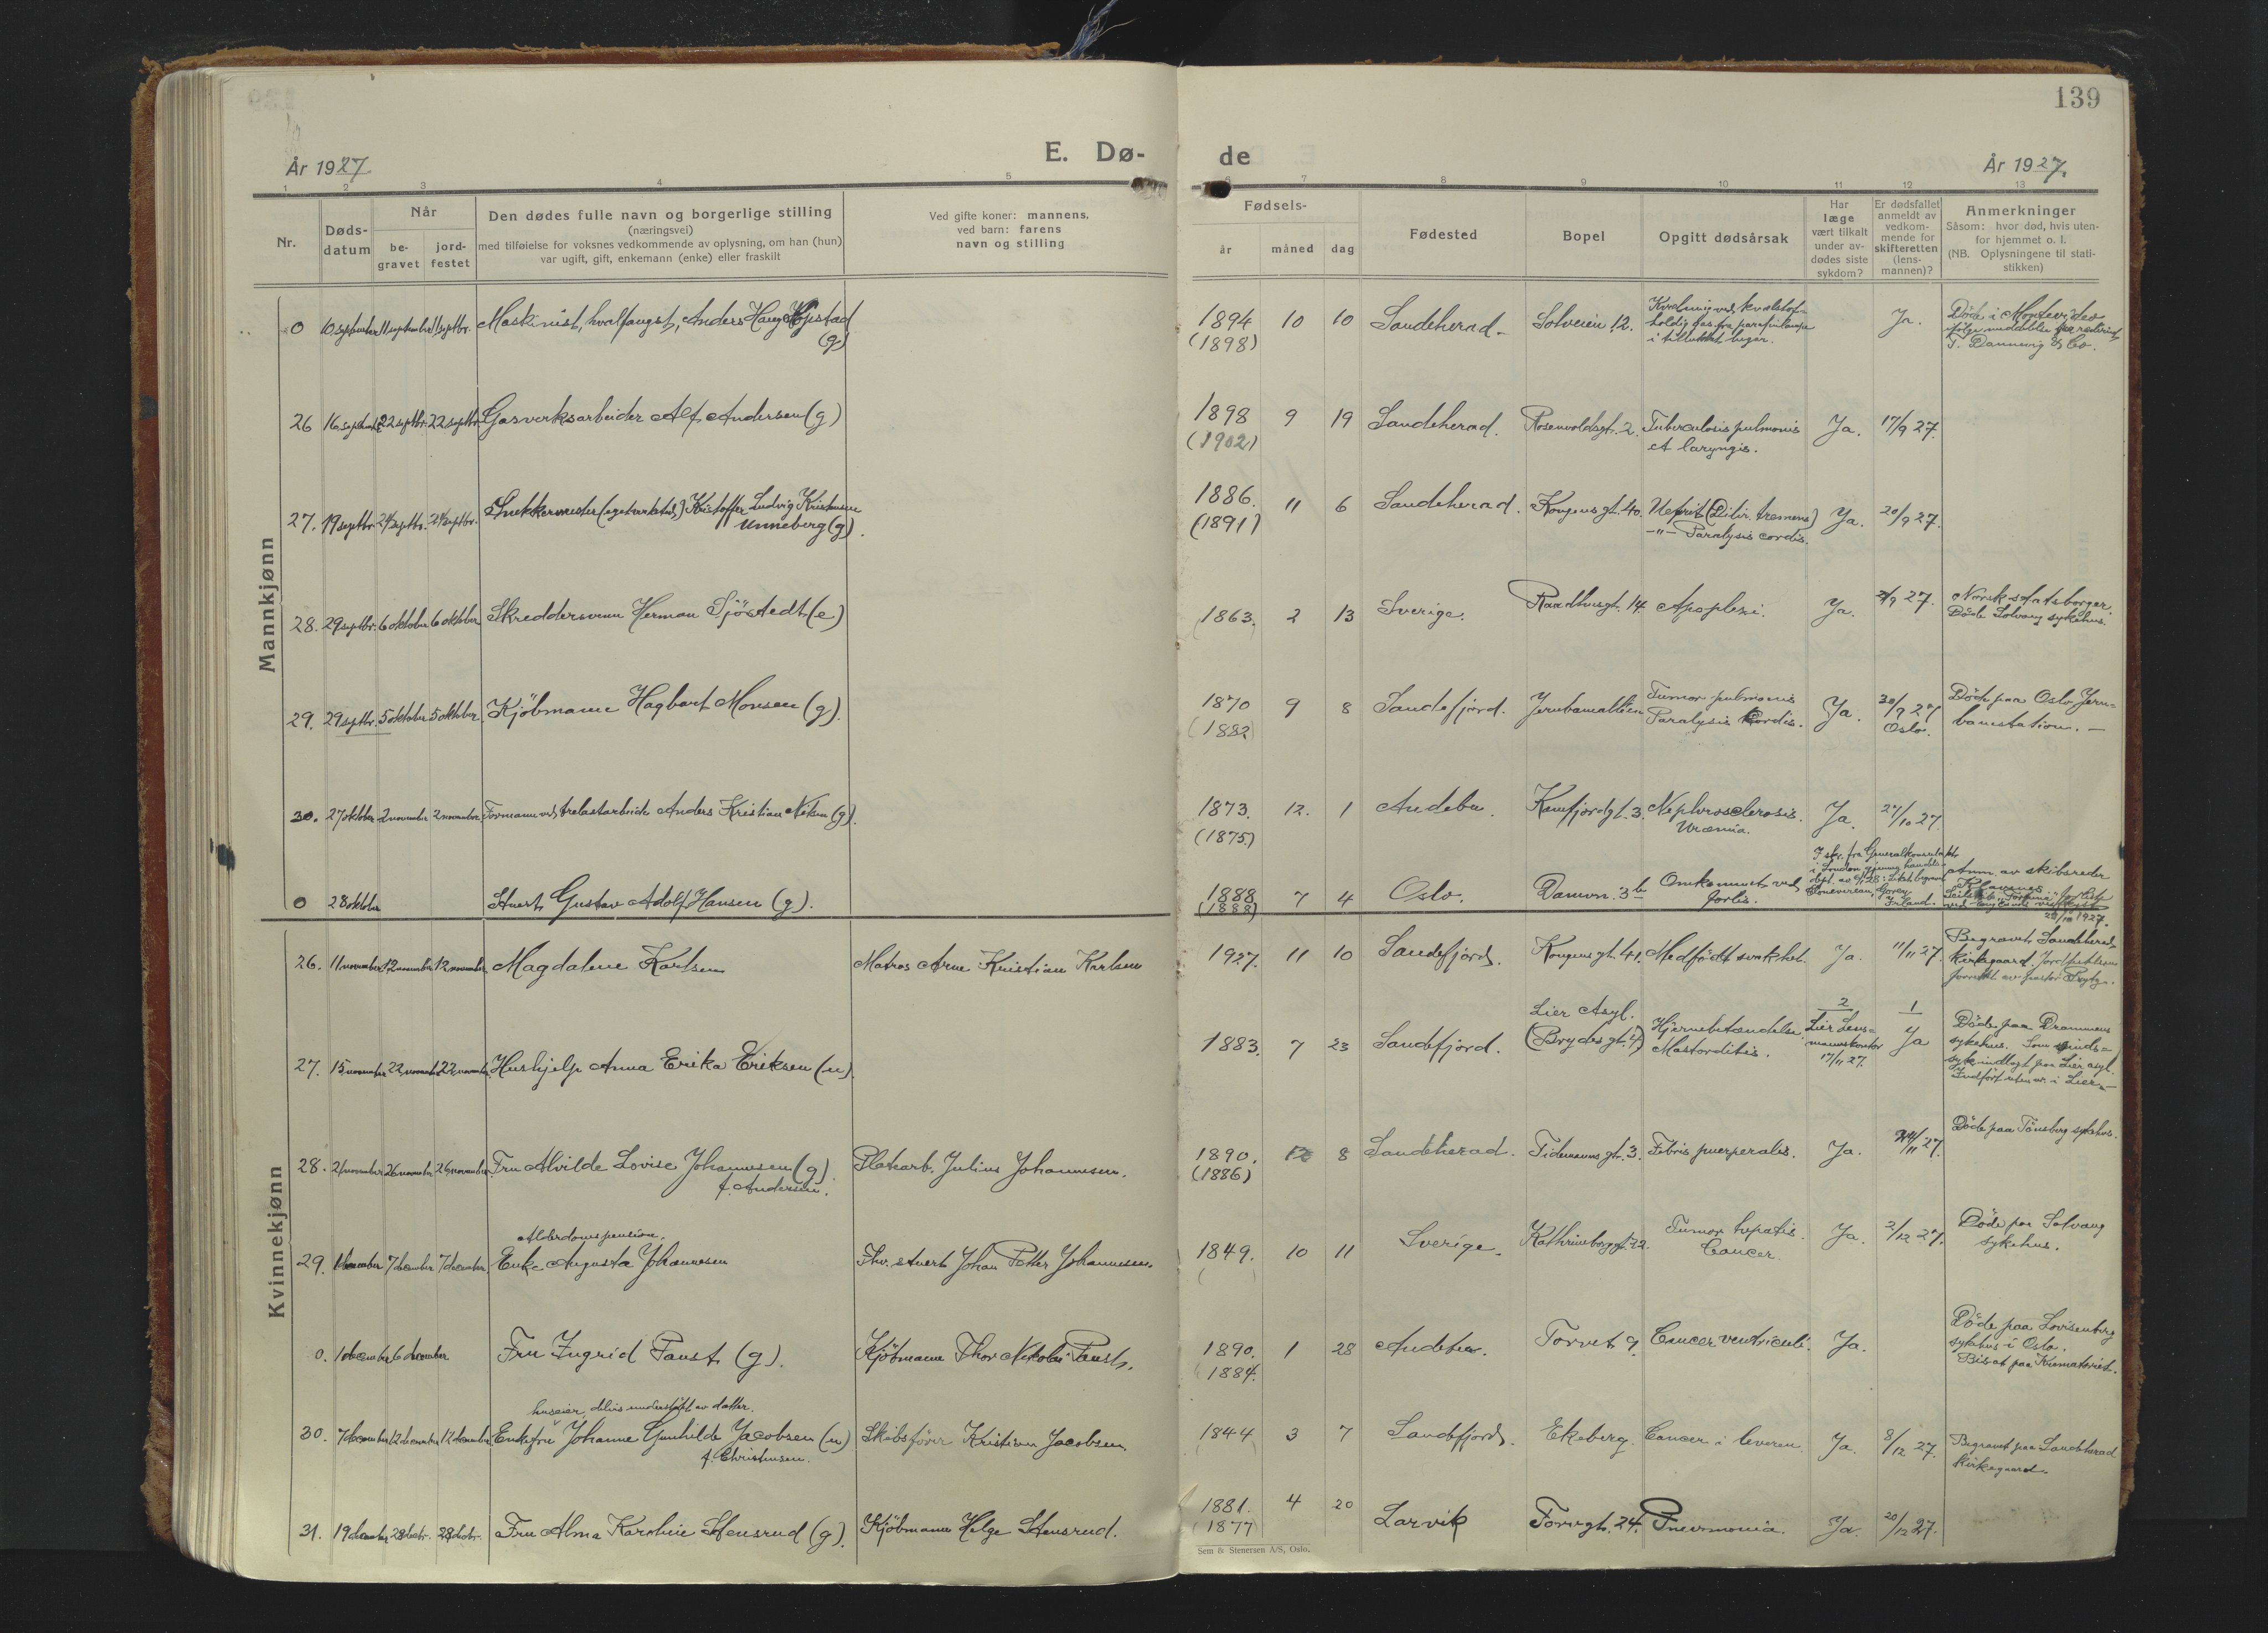 139
År 1927.
E. Dø-
de
År 1927.
1 2 3 4 5
6 7 8 9 10 11 12 13
Nr.
Døds-
datum
Når
be-
gravet
jord-
festet
Den dødes fulle navn og borgerlige stilling
(næringsvei)
med tilføielse for voksnes vedkommende av oplysning, om han (hun)
var ugift, gift, enkemann (enke) eller fraskilt
Ved gifte koner: mannens,
ved barn: farens
navn og stilling
Fødsels-
år
måned
dag
Fødested
Bopel
Opgitt dødsårsak
Har
læge
vært tilkalt
under av-
dødes siste
sykdom?
Er dødsfallet
anmeldt av
vedkom-
mende for
skifteretten
(lens-
mannen)?
Anmerkninger
Såsom: hvor død, hvis uten-
for hjemmet o. l.
(NB. Oplysningene til stati-
stikken)
Mannkjønn
0 10 september 11 september 11 septbr. Maskinist, hvalfangst, Anders Haug
(g)
1894 10 10 Sandeherad. Solveien 12.
(1898)
i tillukket
Ja.
Døde i Montevideo
ifølge meddelelse fra rederiet
T. Dannevig & Co.
26 16 september 22 septbr. 22 septbr. Gasverksarbeider Alf Andersen (g)
1898 9 19 Sandeherad. Rosenvoldsgt. 2. Tuberculosis pulmonis Ja. 17/9 27.
(1902) et laryngis.
27. 19 septbr. 24 septbr. 24 septbr. Snekkermester (eget verksted) Kristoffer Ludvig Kristensen
Unneberg (g).
1886. 11 6 Sandeherad. Kongens gt. 40. Nefrit (Delir. tremens) Ja. 20/9 27.
(1891) -"- Paralysis cordis.
28. 29 septbr. 6 oktober 6 oktober Skreddersvenn Herman Sjöstedt (e)
1863. 2 13 Sverige. Raadhusgt. 14 Apoplexi. Ja. 27. Norsk statsborger.
Døde Solvang sykehus.
29. 29 septbr. 5 oktober 5 oktober. Kjöbmann Hagbart Monsen (g).
1870 9 8 Sandefjord. Jernbanealléen Tumor pulmonis Ja. 30/9 27 Døde paa Oslo Jern-
(1882) Paralysis Cordis. Oslo. banestation. —
30. 27 oktober 2 november 2 november Formann ved trelastarbeide Anders Kristian (g).
1873. 12. 1 Andebu. Kamfjordgt. 3. Nephrosclerosis. Ja. 27/10 27.
(1875) Uræmia.
0 28 oktober Stuert Gustav Adolf Hansen (g).
1888 7 4 Oslo. Damvn. 3b Omkommet ved
(1888) forlis.
I skr. fra Generalkonsulatet
i London
Irland.
Anm. av skibsreder
28/10 1927.
Kvinnekjønn
26. 11 november 12 november 12 november Magdalene Karlsen Matros Arne Kristian Karlsen
1927. 11 10 Sandefjord. Kongens gt. 41. Medfödt svakhet. Ja. 11/11 27. Begravet Sandeherad
kirkegaard. Jordfestelsen
forrettet av pastor
27. 15 november 22 november 22 november. Hushjelp Anna Erika Eriksen (u).
1883. 7 23 Sandefjord. Lier Asyl.
(Brydes gt. 4) Hjernebetændelse.
Mastorditis.
2
Lier Lens-
mannskontor
17/11 27.
1
Ja
Døde paa Drammens
sykehus. Som sinds-
syk indlagt paa Lier asyl.
Indfört uten nr. i Lier. —
28. 21 november 26 november 26 november. Fru Alvilde Lovise Johannesen (g). Platearb. Julius Johannesen.
f. Andersen.
1890. 12 8 Sandeherad. Tidemanns gt. 3. Febris puerperalis. Ja. 24/11 27. Døde paa Tönsberg sykehus.
(1886)
Alderdomspension.
29. 1 december 7 december 7 december. Enke Augusta Johannesen Fhv. stuert Johan Petter Johannesen.
1849. 10 11 Sverige. Kathrineborggt. 22. Tumor hepatis. Ja. 2/12 27. Døde paa Solvang
Cancer. sykehus.
0. 1 december 6 december Fru Ingrid Faust (g). Kjöbmann Thor Nikolai Faust.
1890. 1 28 Andebu. Torvet 9. Cancer ventriculi. Ja. Døde paa Lovisenberg
1884. sykehus i Oslo.
Bisat paa Krematoriet.
huseier, delvis understöttet av datter.
30. 7 december 12 december 12 december Enkefru Johanne Gunhilde Jacobsen (u) Skibsförer Kristian Jacobsen.
f. Christensen.
1844 3 7 Sandefjord. Ekeberg. Cancer i leveren. Ja. 8/12 27. Begravet paa Sandeherad
kirkegaard.
31. 19 december 28 decbr. 28 decbr. Fru Alma Karoline Stensrud (g). Kjöbmann Helge Stensrud.
1881. 4 20 Larvik Torvgt. 24. Pnevmonia. Ja. 20/12 27.
(1877)
Sem & Stenersen A/S, Oslo.